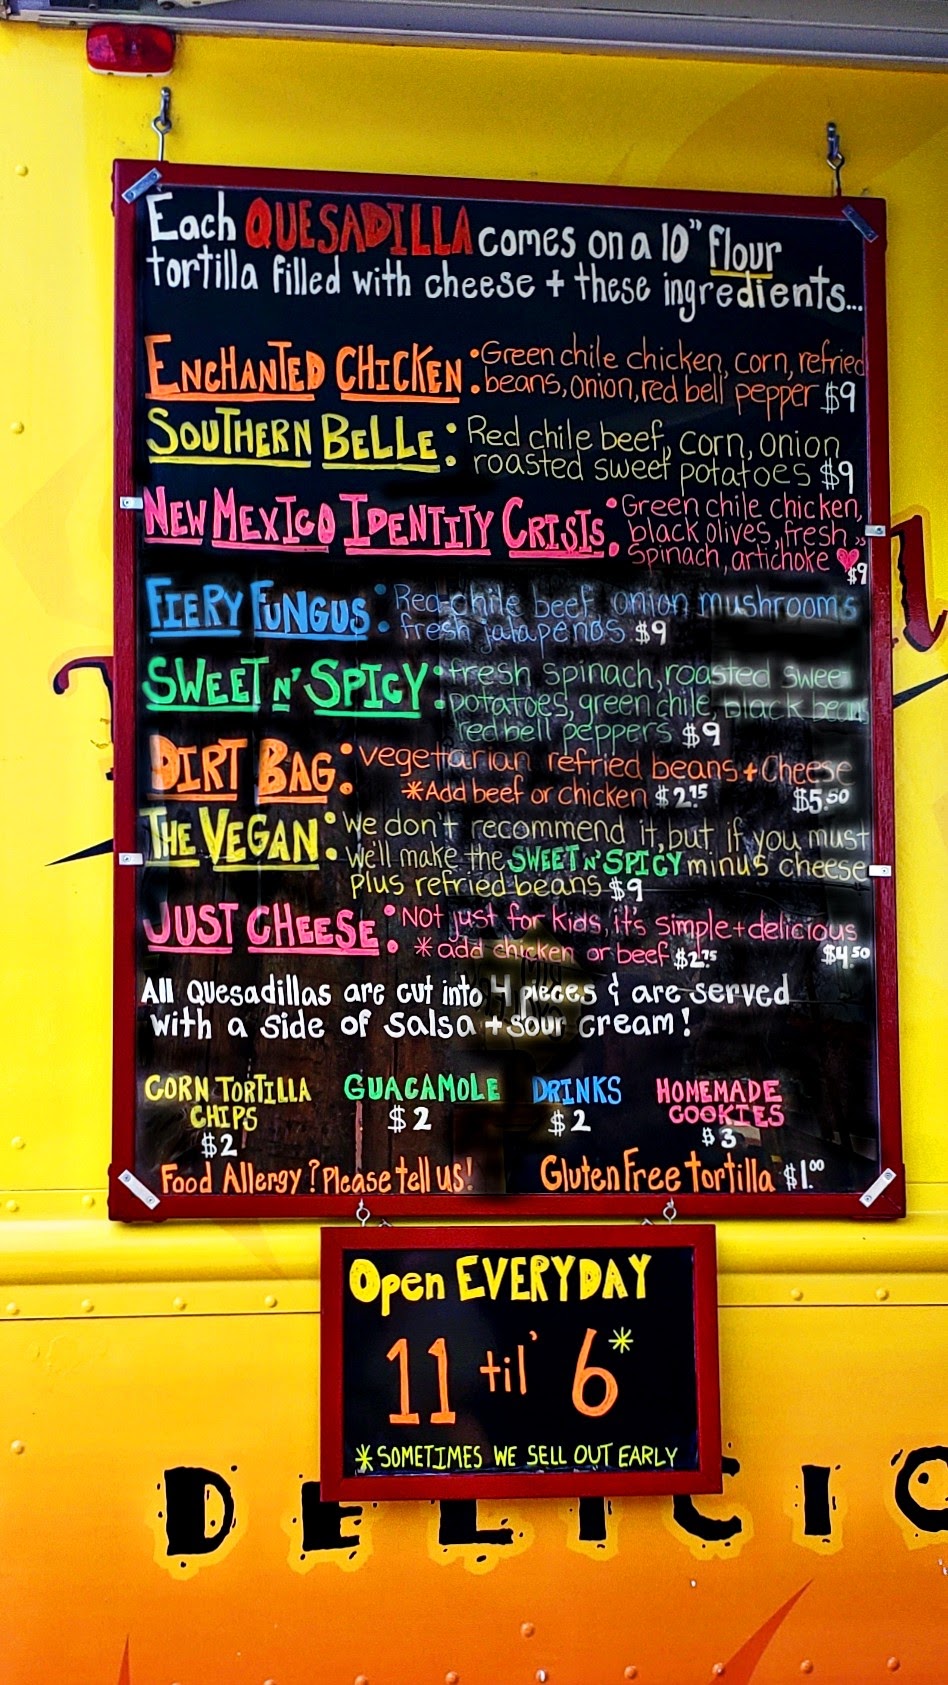 Each QUESADILLA comes on a 10" flour
tortilla filled with cheese + these ingredients...
ENCHANTED CHICKEN: Green chile chicken, corn, refried
beans, onion, red bell pepper $9
SOUTHERN BELLE: Red chile beef, corn, onion
roasted sweet potatoes $9
NEW MEXICO IDENTITY CRISIS: Green chile chicken,
black olives, fresh
spinach, artichoke ♥
$9
FIERY FUNGUS: Red chile beef, onion mushrooms
fresh jalapenos $9
SWEET N' SPICY: fresh spinach, roasted sweet
potatoes, green chile, black beans
red bell peppers $9
DIRT BAG: vegetarian refried beans + Cheese
*Add beef or chicken $2.75 $5.50
THE VEGAN: We don't recommend it, but if you must
We'll make the SWEET N' SPICY minus cheese
plus refried beans $9
JUST CHEESE: Not just for kids, it's simple + delicious
*add chicken or beef $2.75 $4.50
All Quesadillas are cut into 4 pieces & are served
with a side of salsa + sour cream!
CORN TORTILLA CHIPS $2
GUACAMOLE $2
DRINKS $2
HOMEMADE COOKIES $3
Food Allergy? Please tell us! Gluten Free tortilla $1.00
Open EVERYDAY
11 til' 6*
*SOMETIMES WE SELL OUT EARLY
DELICIO